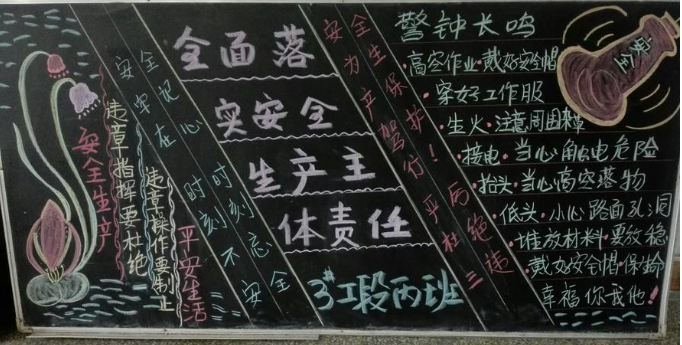 安全生产
违章指挥要杜绝
违章操作要制止
平安生活
安全记心
安牢在
时时
刻刻不忘安全
全面落
实安全
生产主
体责任
3#工段丙班
安全生产
为生产保驾护行！
严两杜绝三违
警钟长鸣
高空作业·戴好安全帽
·穿好工作服
·生火·注意周围
·接电·当心触电危险
·抬头·当心高空落物
·低头·小心路面孔洞
·堆放材料·要放稳
·戴好安全帽·保龄
幸福你我他！
安全